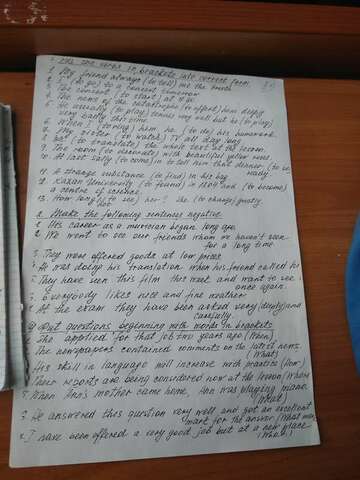 1. Use the verbs in brackets into correct form
1. My friend always (to tell) me the truth
2. I (to go) to a concert tomorrow
3. The concert (to start) at 7.30
4. The news of the catastrophe (to affect) him deeply
5. He usually (to play) tennis very well but he (to play)
very badly this time.
6. When I (to ring) him he (to do) his homework.
7. My sister (to watch) TV all day long
8. He (to translate) the whole text at the lesson.
9. The room (to decorate) with beautiful yellow roses.
10. At last Sally (to come) in to tell him that dinner (to be)
ready.
11. A strange substance (to find) in his bag
12. Kazan University (to found) in 1804 and (to become)
a centre of science.
13. How long (to see) her? She (to change) greatly.
2. Make the following sentences negative
1. His career as a musician began long ago.
2. We went to see our friends whom we haven't seen
for a long time
3. They were offered goods at low prices.
4. He was doing his translation when his friend called him
5. They have seen this film this week and want to see it
once again.
6. Everybody likes nice and fine weather
At the exam they have been asked very (deeply) and
carefully.
Put questions beginning with words in brackets
She applied for that job two years ago (When)
The newspapers contained comments on the latest news.
(What)
His skill in language will increase with practice (How)
Their reports are being considered now at the lesson (Where)
When Ann's mother came home, Ann was playing piano.
(What)
He answered this question very well and got an excellent
mark for the answer (What mark)
I have been offered a very good job but at a new place